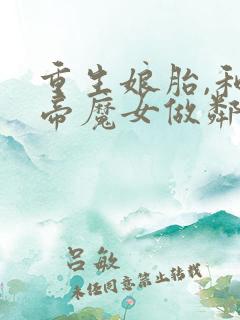 重生娘胎,和
帝魔女做鄰
吕敏
未经同意禁止转载